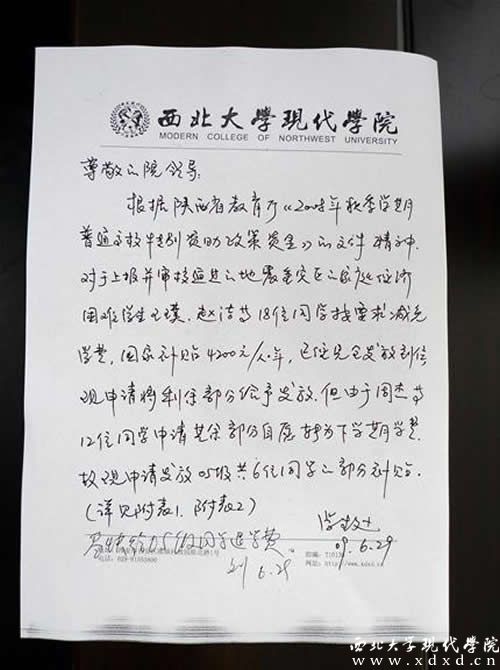 西北大學現代學院
MODERN COLLEGE OF NORTHWEST UNIVERSITY
尊敬的院领导:
根据陕西省教育厅《2008年秋季学期
普通高校特别资助政策资金》的文件精神,
对于上报并审核通过的地震重灾区的家庭经济
困难学生王璞、赵洁等18位同学按要求减免
学费,国家补贴4200元/人·年,已经完全发放到位
现申请将剩余部分给予发放.但由于周杰等
12位同学申请其余部分自愿转为下学期学费
故现申请发放05级共6位同学的部分补贴.
(详见附表1、附表2)
学生处
09.6.29
05级同学退学费
刘 6.29
电话:029-
邮编:7101
网址:http://www.xdxd.cn
西北大学现代学院
www.xdxd.cn